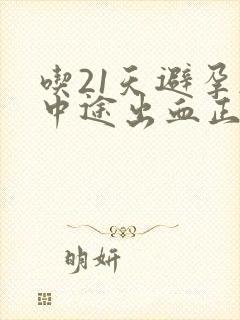 喫21天避孕
中途出血正
明妍